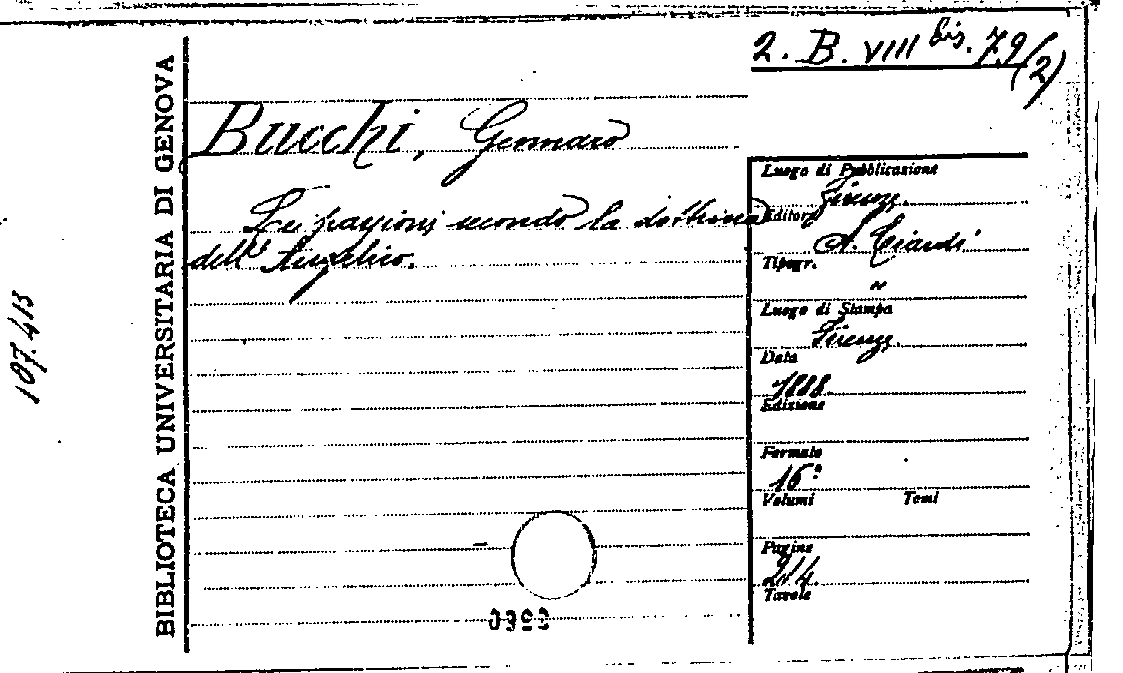 2. B. VIII bis. 79 (2)
BIBLIOTECA UNIVERSITARIA DI GENOVA
Bucchi, Gennaro
Le passioni secondo la dottrina
dell' Angelico.
Luogo di Pubblicazione
Firenze.
Editore
A. Ciardi
Tipogr.
"
Luogo di Stampa
Firenze.
Data
1888.
Edizione
Formato
16º
Volumi Tomi
Pagine
214.
Tavole
107.413